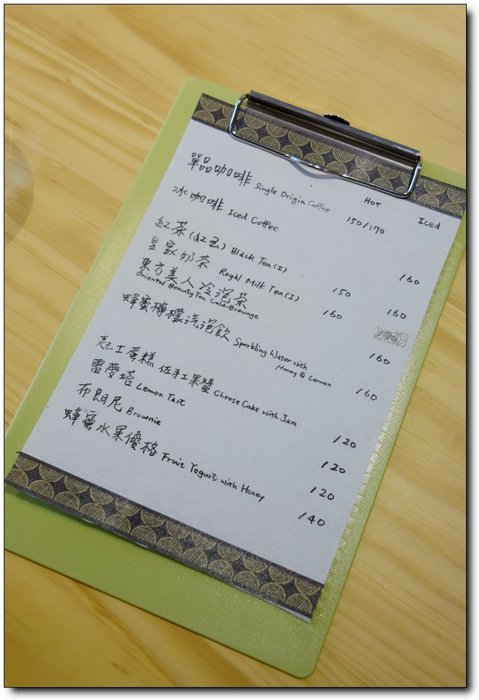 HOT Iced
單品咖啡 Single Origin Coffee 150/170
冰咖啡 Iced Coffee 160
紅茶(紅玉) Black Tea(I) 150
皇家奶茶 Royal Milk Tea(I) 160 160
東方美人冷泡茶
Oriental Beauty Tea Cold-Brewage
蜂蜜檸檬氣泡飲 Sparkling Water with 160
Honey & Lemon 160
起士蛋糕 佐手工果醬 Cheese Cake with Jam 120
雷夢塔 Lemon Tart 120
布朗尼 Brownie 120
蜂蜜水果優格 Fruit Yogurt with Honey 140